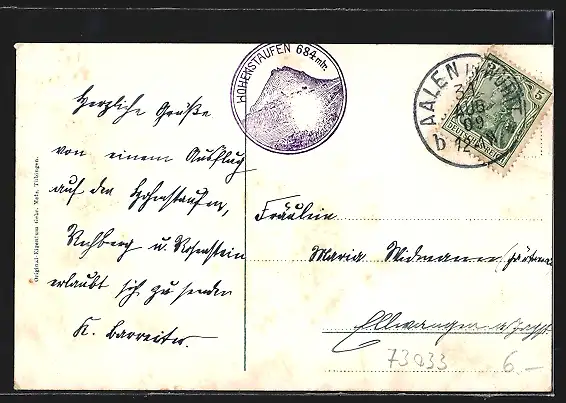 HOHENSTAUFEN 684 mtr.
AALEN
31
AUG
09
b 12-
5
Herzliche Grüße
von einem Ausflug
auf den Hohenstaufen,
Rechberg u. Rosenstein
erlaubt sich zu senden
K. Barreiter.
Fräulein
Maria Widmann
Ellwangen a/Jagst
73033
6.-
Original-Eigentum Gebr. Metz, Tübingen.